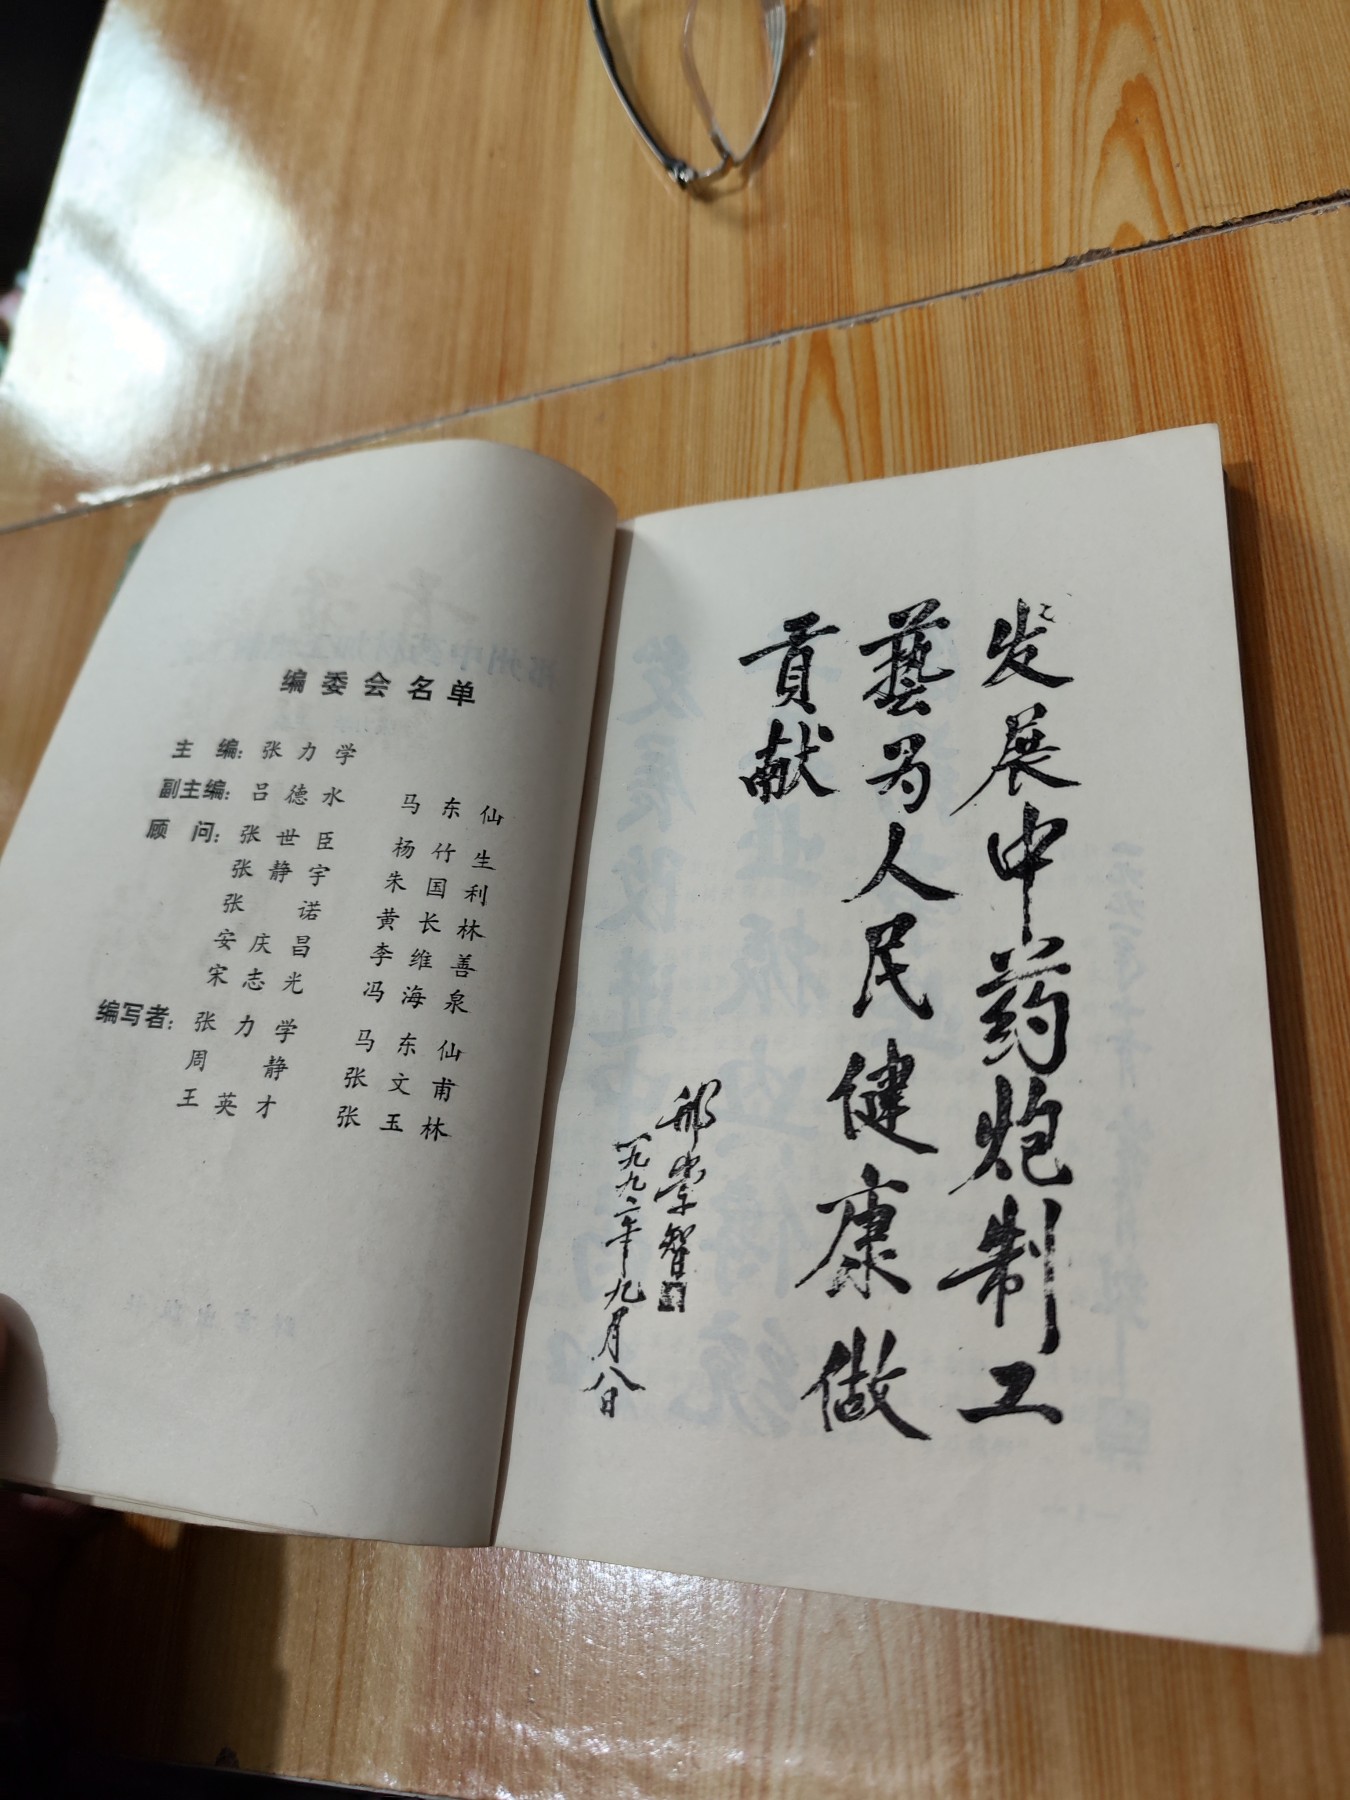 编委会名单
主 编：张力学
副主编：吕德水 马东仙
顾 问：张世臣 杨竹生
张静宇 朱国利
张 诺 黄长林
安庆昌 李维善
宋志光 冯海泉
编写者：张力学 马东仙
周 静 张文甫
王英才 张玉林
发展中药炮制工
藝为人民健康做
贡献
邢崇智
一九九二年九月八日